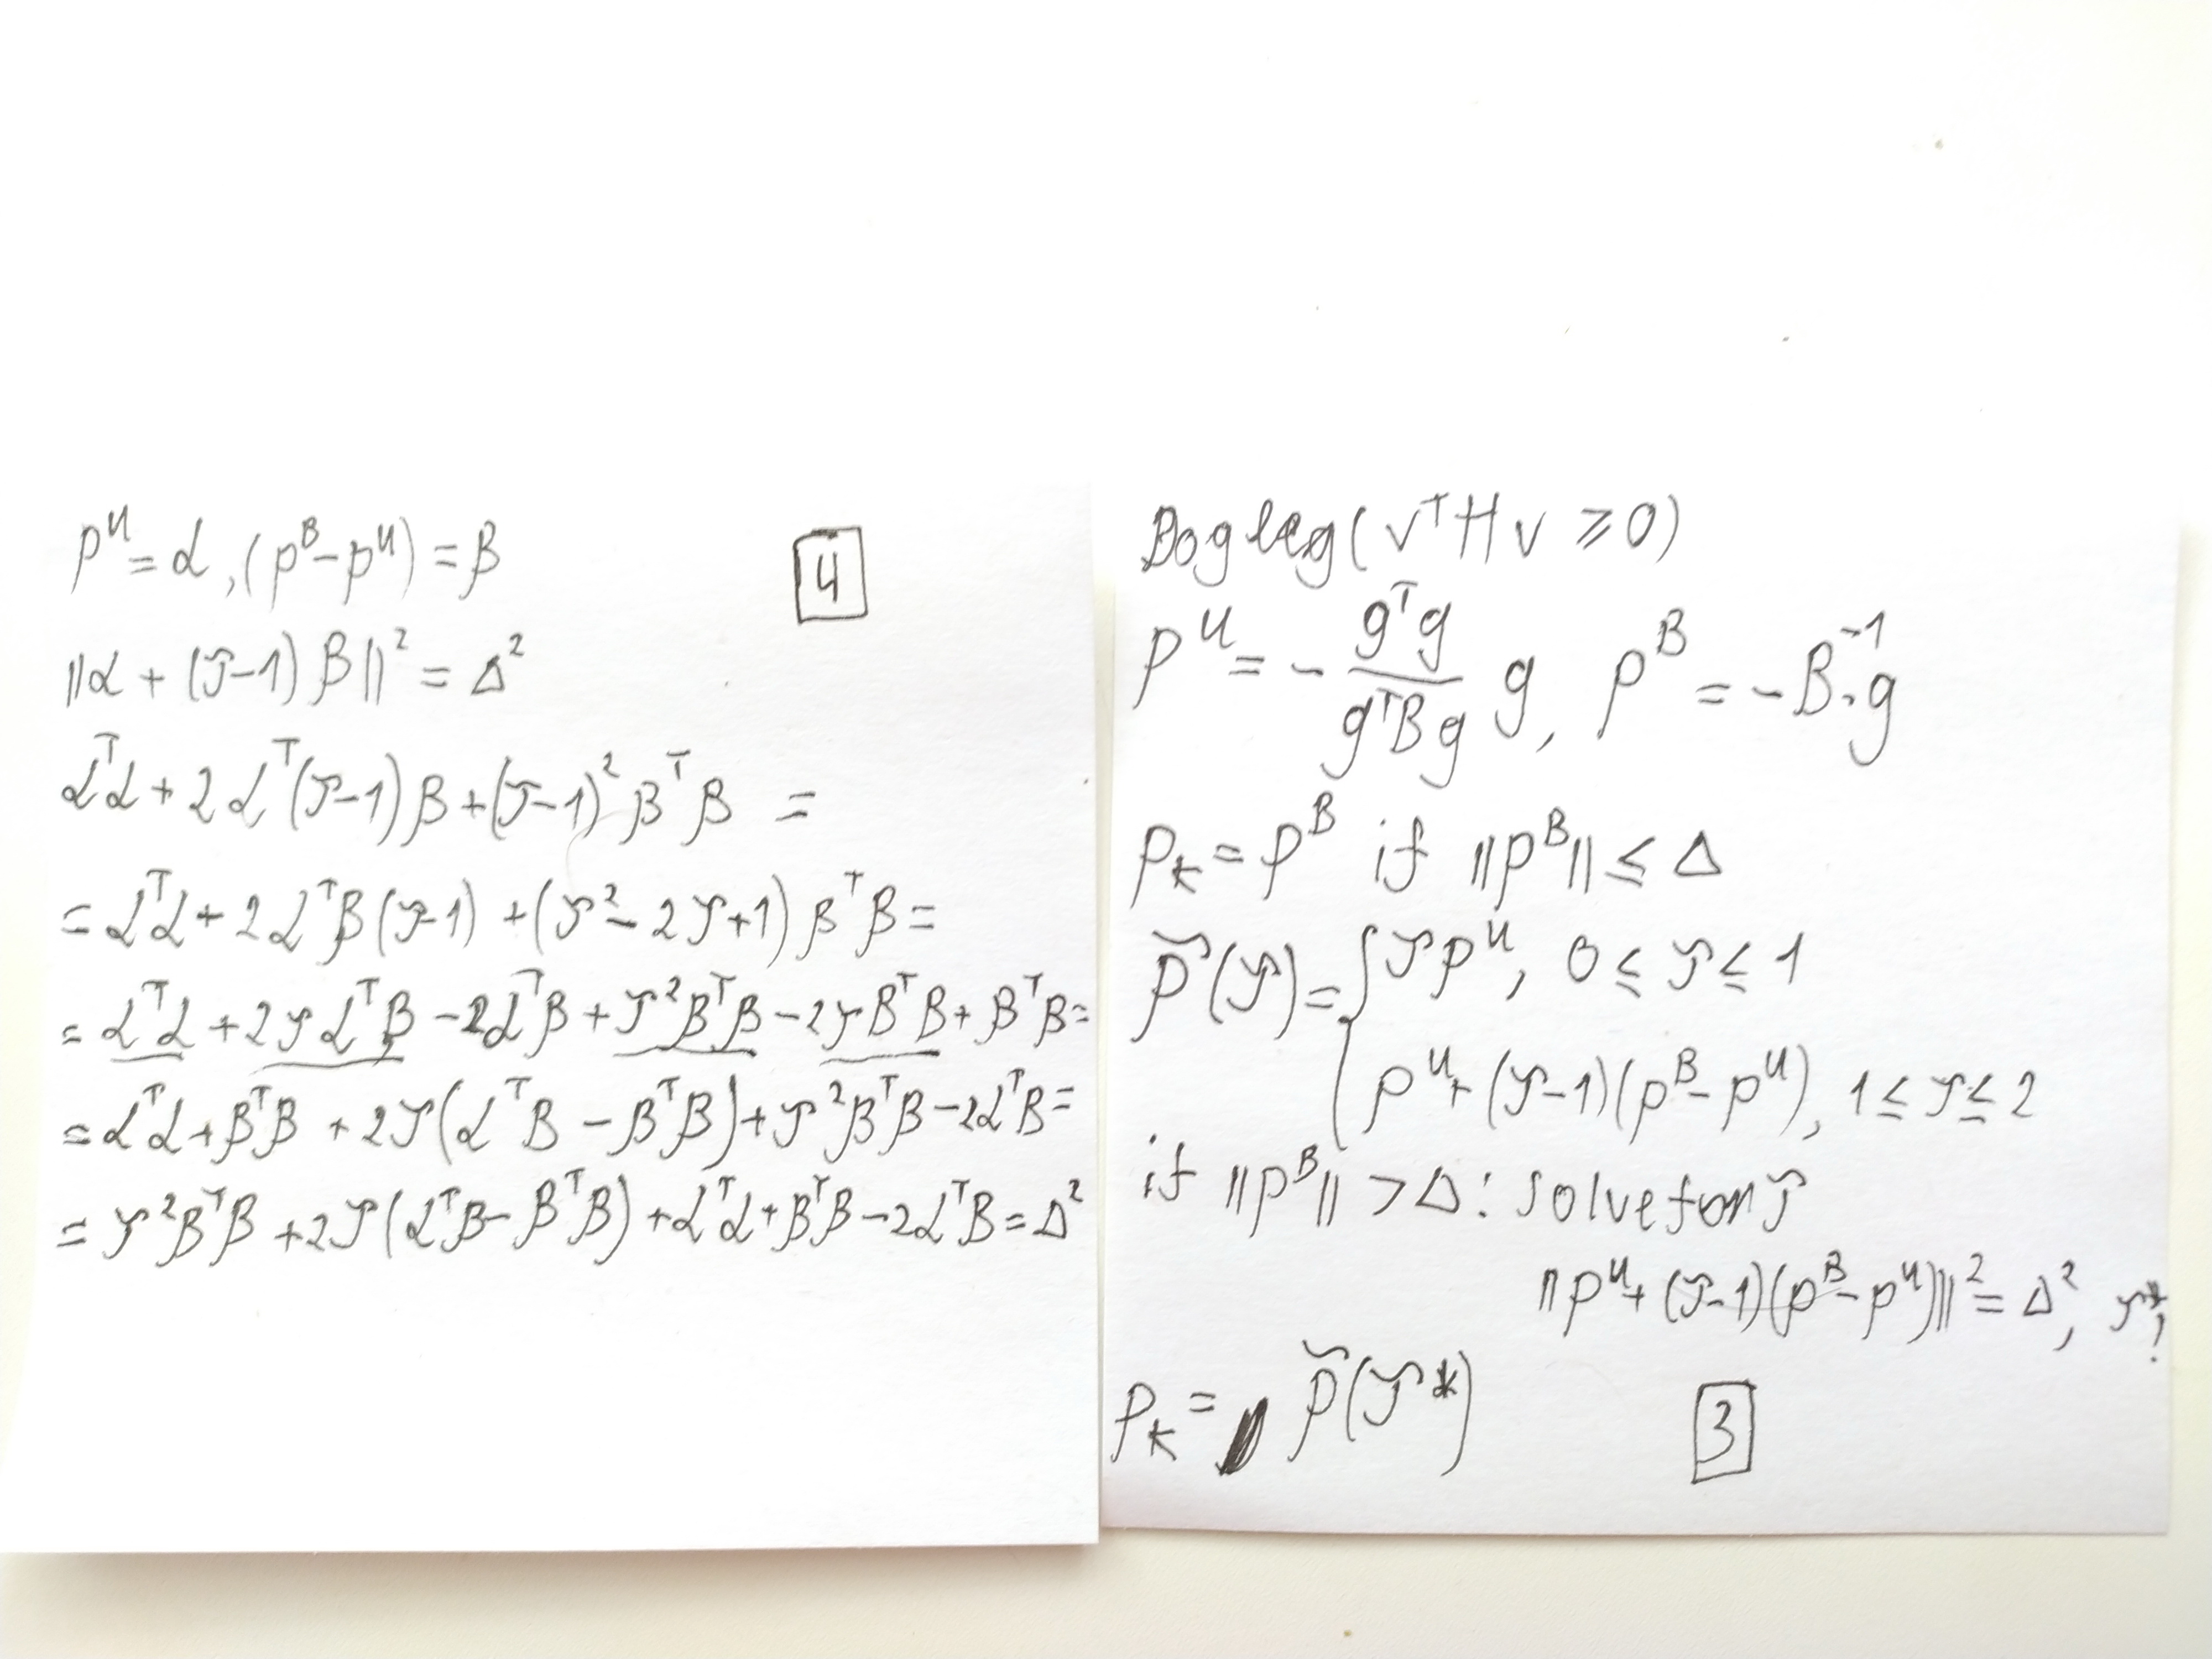 p^U = α, (p^B - p^U) = β
4
||α + (τ-1) β||² = Δ²
α^Tα + 2α^T(τ-1)β + (τ-1)²β^Tβ =
= α^Tα + 2α^Tβ(τ-1) + (τ² - 2τ + 1) β^Tβ =
= α^Tα + 2τα^Tβ - 2α^Tβ + τ²β^Tβ - 2τβ^Tβ + β^Tβ =
= α^Tα + β^Tβ + 2τ(α^Tβ - β^Tβ) + τ²β^Tβ - 2α^Tβ =
= τ²β^Tβ + 2τ(α^Tβ - β^Tβ) + α^Tα + β^Tβ - 2α^Tβ = Δ²
Dogleg (v^T H v ≥ 0)
p^U = - \frac{g^T g}{g^T B g} g, p^B = -B^{-1}·g
p_k = p^B if ||p^B|| ≤ Δ
p̃(τ) = { τp^U, 0 ≤ τ ≤ 1
p^U + (τ-1)(p^B - p^U), 1 ≤ τ ≤ 2
if ||p^B|| > Δ: solve for τ
||p^U + (τ-1)(p^B - p^U)||² = Δ², τ*;
p_k = p̃(τ*)
3